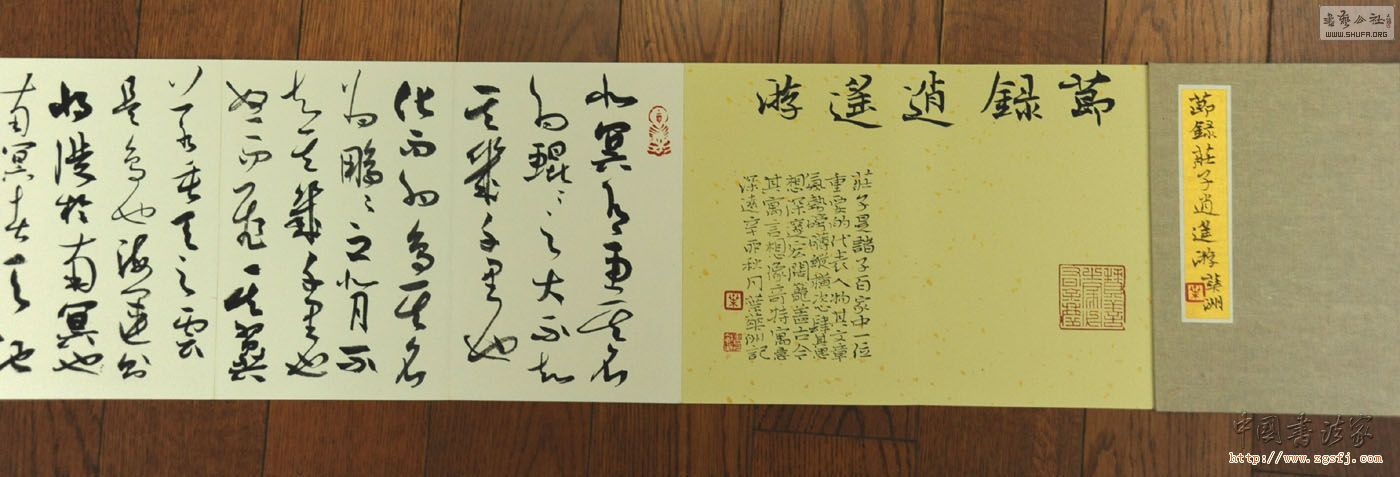 書藝公社
WWW.SHUFA.ORG
節錄莊子逍遥游
節錄逍遥游
莊子是諸子百家中一位
重要的代表人物其文章
氣勢磅礴縱橫恣肆其思
想深邃宏闊籠蓋古今
其寓言想像奇特寓意
深遠秋月記
北冥有魚其名
為鯤〻之大不知
其幾千里也
化而為鳥其名
為鵬〻之背不
知其幾千里也
怒而飛其翼
若垂天之雲
是鳥也海運則
將徙於南冥也
南冥者天池
中国书法家
http://www.zgsfj.com